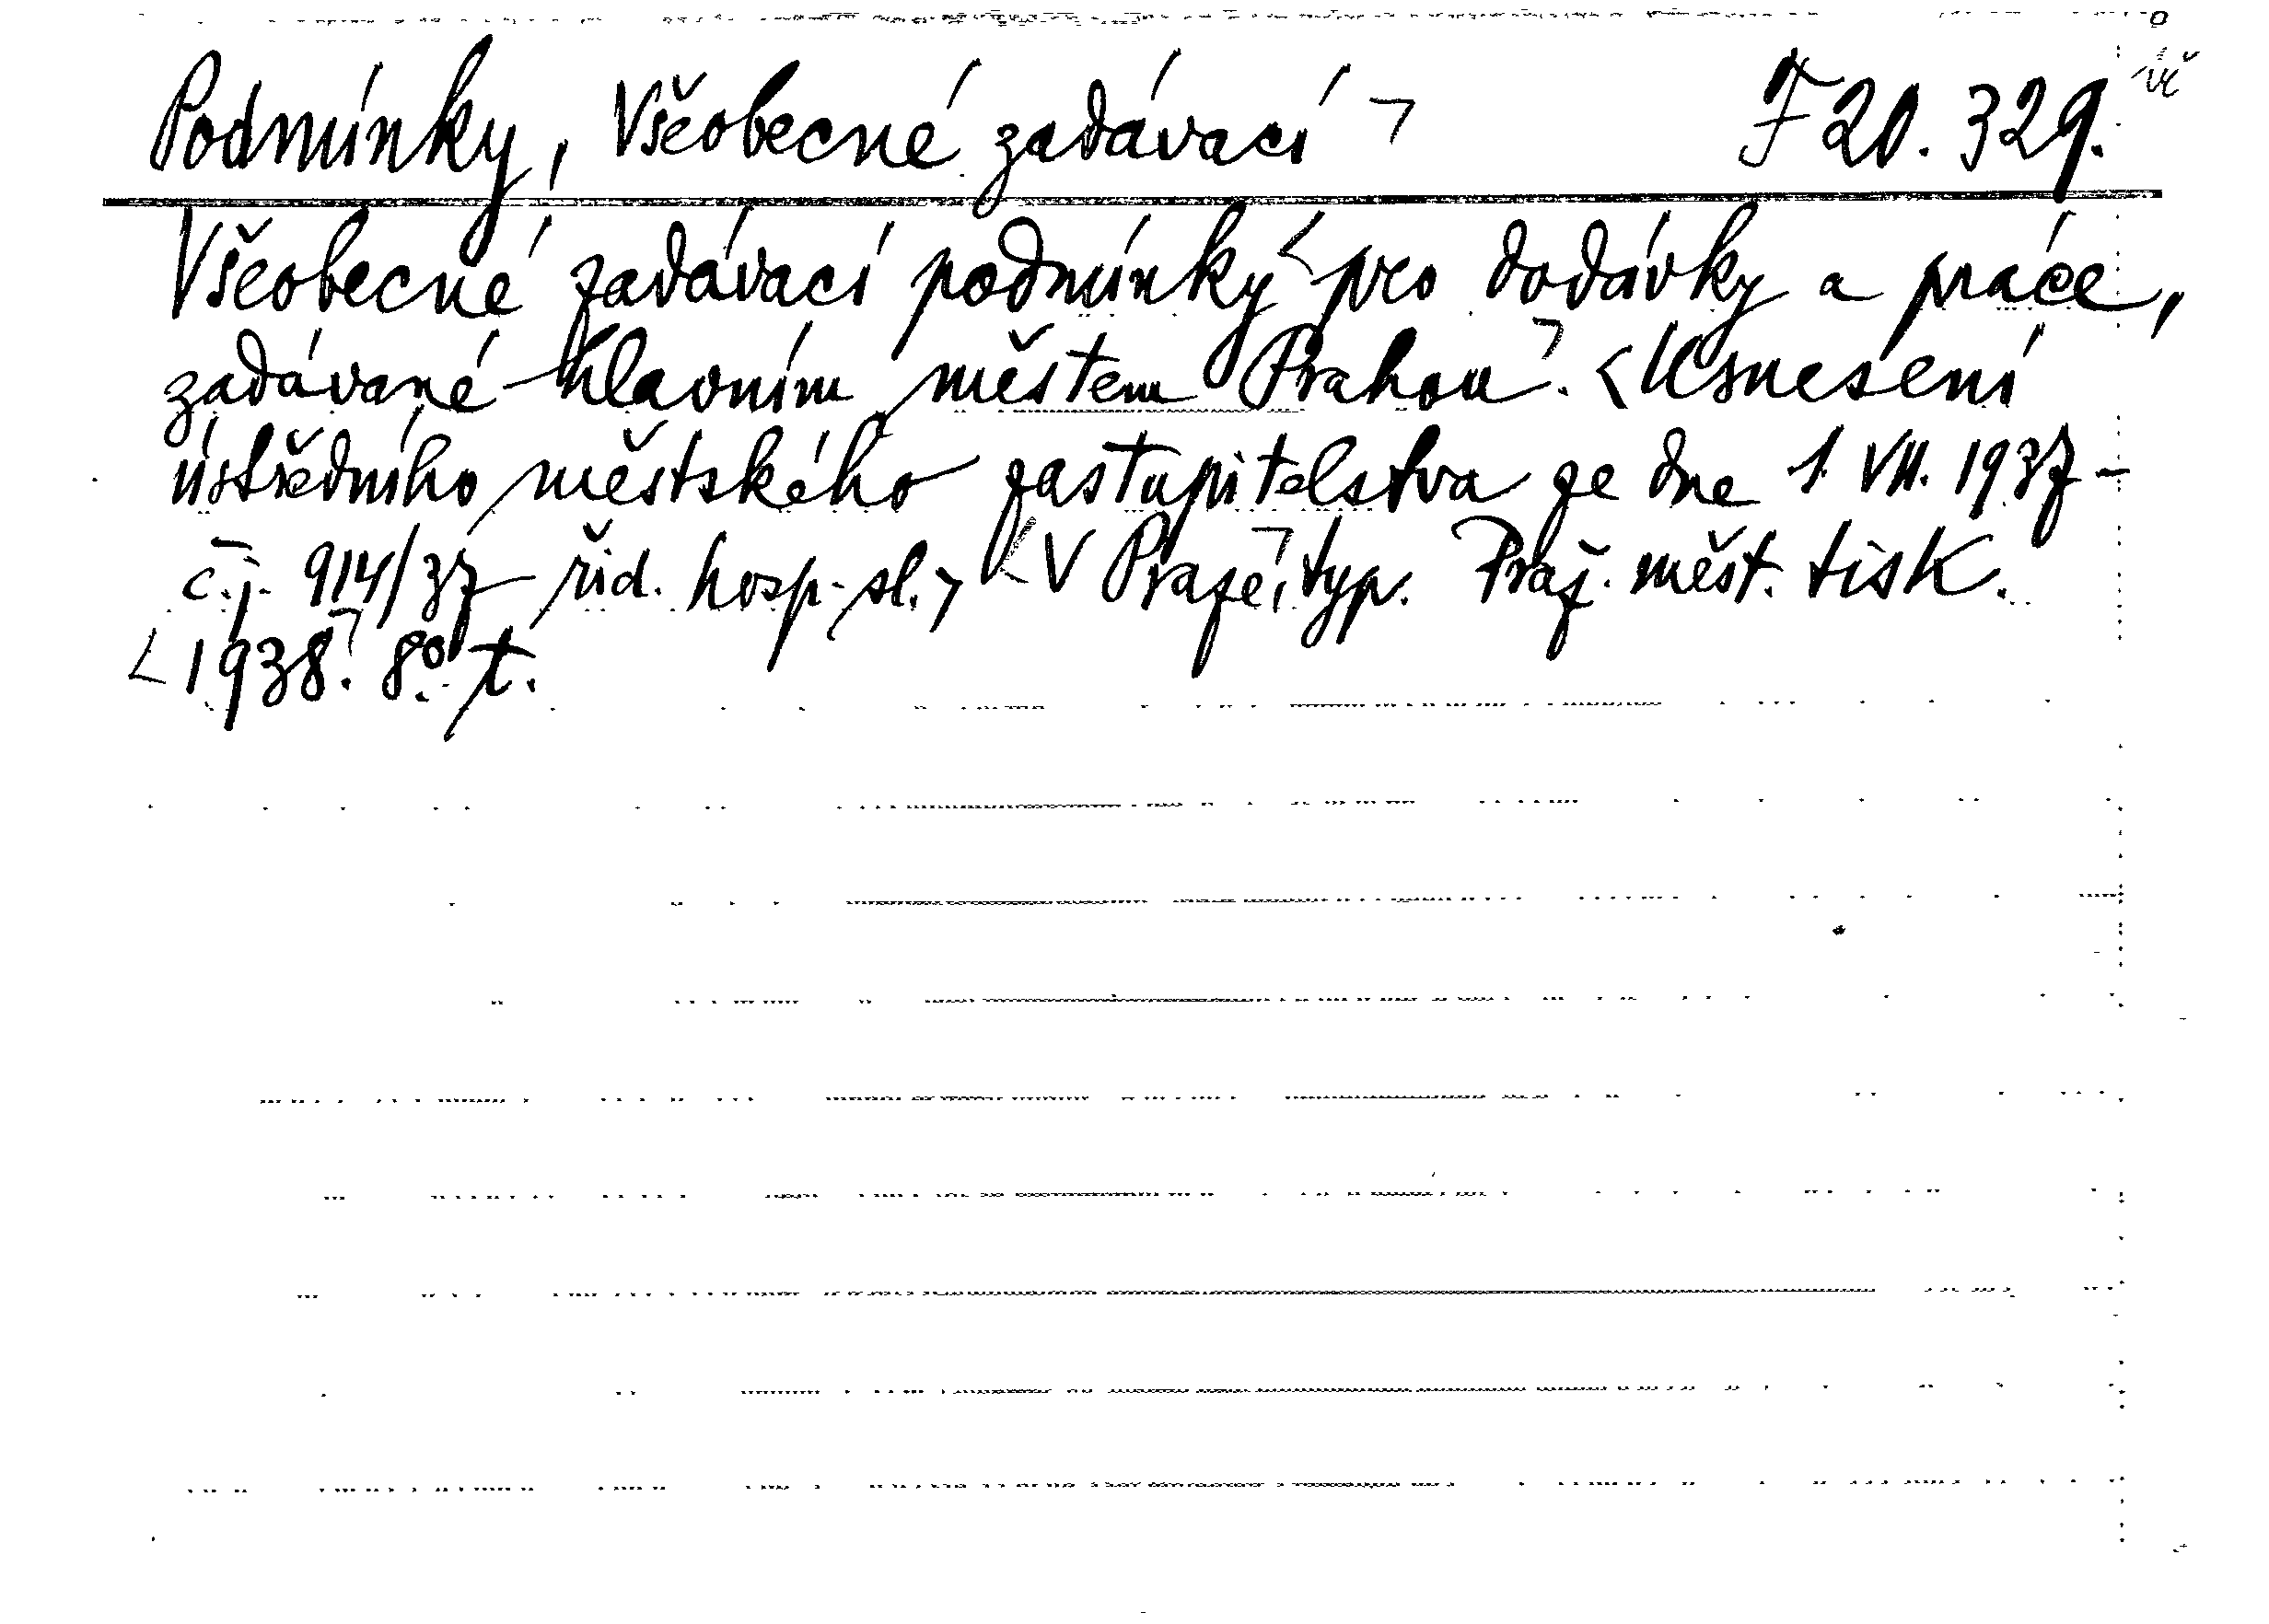 Podmínky, Všeobecné zadávací ¬ F 20.329.
Všeobecné zadávací podmínky < pro dodávky a práce,
zadávané hlavním městem Prahou ¬. < Usnesení
ústředního městského zastupitelstva ze dne 1. VII. 1937 -
č.j. 914/37 řid. hosp. sl. > < V Praze ¬, typ. Praž. měst. tisk.
< 1938 ¬. 8° t.